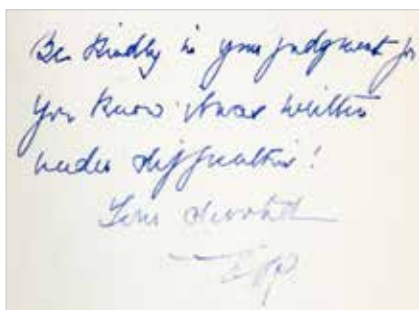 Be kindly in your judgment for
you know it was written
under difficulties!
Your devoted